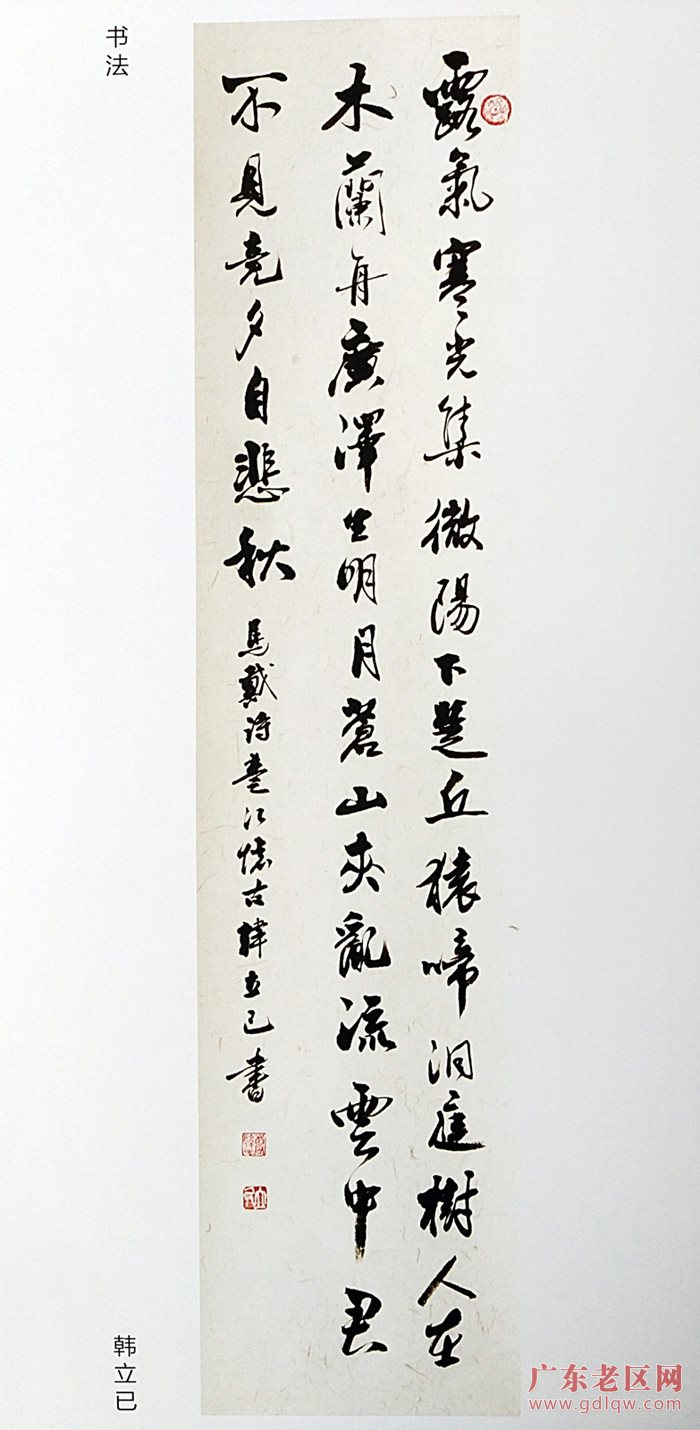 书法
露氣寒光集微陽下楚丘猿啼洞庭樹人在
木蘭舟廣澤生明月蒼山夾亂流雲中君
不見竟夕自悲秋
馬戴詩楚江懷古韓立已書
韩立已
广东老区网
www.gdlqw.com